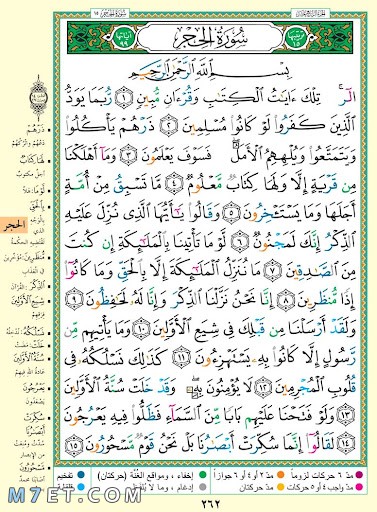 سُورَةُ الحِجْرِ
ترتيبها ١٥
آياتها ٩٩
بِسْمِ اللَّهِ الرَّحْمَٰنِ الرَّحِيمِ
الٓر ۚ تِلْكَ ءَايَٰتُ الْكِتَٰبِ وَقُرْءَانٍ مُّبِينٍ ١ رُّبَمَا يَوَدُّ
الَّذِينَ كَفَرُوا لَوْ كَانُوا مُسْلِمِينَ ٢ ذَرْهُمْ يَأْكُلُوا
وَيَتَمَتَّعُوا وَيُلْهِهِمُ الْأَمَلُ ۖ فَسَوْفَ يَعْلَمُونَ ٣ وَمَا أَهْلَكْنَا
مِن قَرْيَةٍ إِلَّا وَلَهَا كِتَابٌ مَّعْلُومٌ ٤ مَّا تَسْبِقُ مِنْ أُمَّةٍ
أَجَلَهَا وَمَا يَسْتَـْٔخِرُونَ ٥ وَقَالُوا يَٰٓأَيُّهَا الَّذِي نُزِّلَ عَلَيْهِ
الذِّكْرُ إِنَّكَ لَمَجْنُونٌ ٦ لَّوْ مَا تَأْتِينَا بِالْمَلَٰٓئِكَةِ إِن كُنتَ
مِنَ الصَّٰدِقِينَ ٧ مَا نُنَزِّلُ الْمَلَٰٓئِكَةَ إِلَّا بِالْحَقِّ وَمَا كَانُوا
إِذًا مُّنظَرِينَ ٨ إِنَّا نَحْنُ نَزَّلْنَا الذِّكْرَ وَإِنَّا لَهُۥ لَحَٰفِظُونَ ٩
وَلَقَدْ أَرْسَلْنَا مِن قَبْلِكَ فِي شِيَعِ الْأَوَّلِينَ ١٠ وَمَا يَأْتِيهِم مِّن
رَّسُولٍ إِلَّا كَانُوا بِهِۦ يَسْتَهْزِءُونَ ١١ كَذَٰلِكَ نَسْلُكُهُۥ فِي
قُلُوبِ الْمُجْرِمِينَ ١٢ لَا يُؤْمِنُونَ بِهِۦ ۖ وَقَدْ خَلَتْ سُنَّةُ الْأَوَّلِينَ
١٣ وَلَوْ فَتَحْنَا عَلَيْهِم بَابًا مِّنَ السَّمَآءِ فَظَلُّوا فِيهِ يَعْرُجُونَ
١٤ لَقَالُوٓا إِنَّمَا سُكِّرَتْ أَبْصَٰرُنَا بَلْ نَحْنُ قَوْمٌ مَّسْحُورُونَ ١٥
ذَرْهُمْ
دعهم واتركهم
لها كتاب
أجل مكتوب
الحجر
منظرين
شيع الأولين
نسلكه
خلت
سنة الأولين
يعرجون
يصعدون
سكرت
أبصارنا
مد ٦ حركات لزوماً
مد ٢ أو ٤ أو ٦ جوازاً
إخفاء، ومواقع الغُنَّة (حركتان)
تفخيم
مد واجب ٤ أو ٥ حركات
مد حركتان
إدغام، وما لا يُلفظ
قلقلة
٢٦٢
M7ET.COM